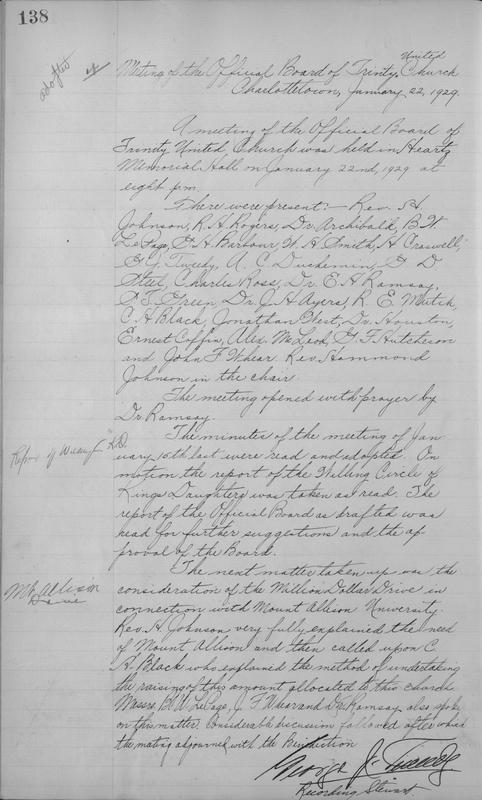 138
adopted
Meeting of the Official Board of Trinity United Church
Charlottetown, January 22, 1929.
A meeting of the Official Board of
Trinity United Church was held in Heartz
Memorial Hall on January 22nd, 1929 at
eight p.m.
There were present:- Rev. H.
Johnson, R. H. Rogers, Dr. Archibald, B. W.
LePage, G. H. Barbour, W. H. Smith, H. Craswell,
G. J. Tweedy, A. C. Duchemin, G D
Steel, Charles Ross, Dr. E. H. Ramsay,
P. T. Green, Dr. J. H. Ayers, R. E. Mutch,
C. H. Black, Jonathan Ghest, Dr. Houston,
Ernest Coffin, Alex. McLeod, G. F. Hutcheson
and John F. Whear. Rev. Hammond
Johnson in the chair.
The meeting opened with prayer by
Dr. Ramsay.
The minutes of the meeting of Jan
uary 15th last were read and adopted. On
Report of Willing K.D.
motion the report of the Willing Circle of
Kings Daughters was taken as read. The
report of the Official Board as drafted was
read for further suggestions and the ap-
proval of the Board.
The next matter taken up was the
Mt. Allison
Drive
consideration of the Million Dollar Drive in
connection with Mount Allison University.
Rev. H. Johnson very fully explained the need
of Mount Allison and then called upon C.
H. Black who explained the method of undertaking
the raising of this amount allocated to this church
Messrs. B. W. LePage, J. F. Whear and Dr. Ramsay also spoke
on this matter. Considerable discussion followed after which
the meeting adjourned with the Benediction
George J. Tweedy
Recording Steward